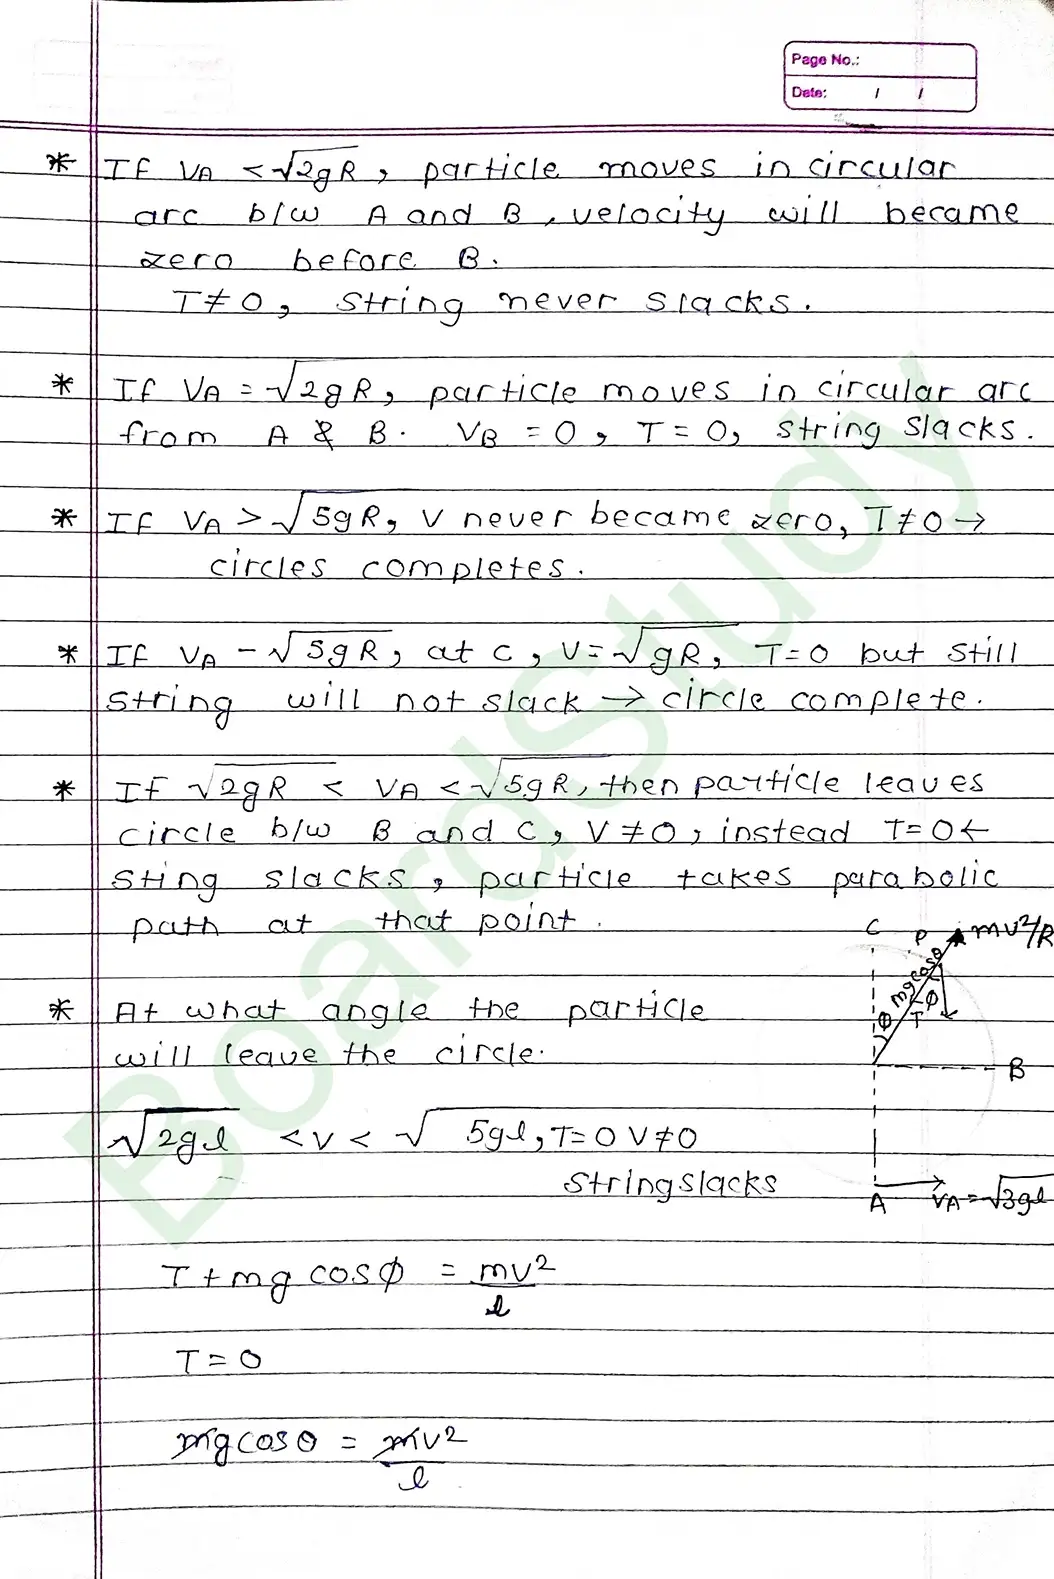 Page No.:
Date: / /
* If VA < √2gR, particle moves in circular
arc b/w A and B, velocity will became
zero before B.
T≠0, string never slacks.
* If VA = √2gR, particle moves in circular arc
from A & B. VB = 0, T = 0, string slacks.
* If VA > √5gR, V never became zero, T≠0 →
circles completes.
* If VA - √5gR, at C, V = √gR, T=0 but still
string will not slack → circle complete.
* If √2gR < VA < √5gR, then particle leaves
circle b/w B and C, V≠0, instead T=0 ←
sting slacks, particle takes parabolic
path at that point.
C P mv²/R
mgcosθ
* At what angle the particle
ϕ T ϕ
will leave the circle.
B
√2gl < V < √5gl, T=0 V≠0
string slacks
A VA = √3gl
T + mg cosϕ = mv²/l
T = 0
mg cosθ = mv²/l
BoardStudy